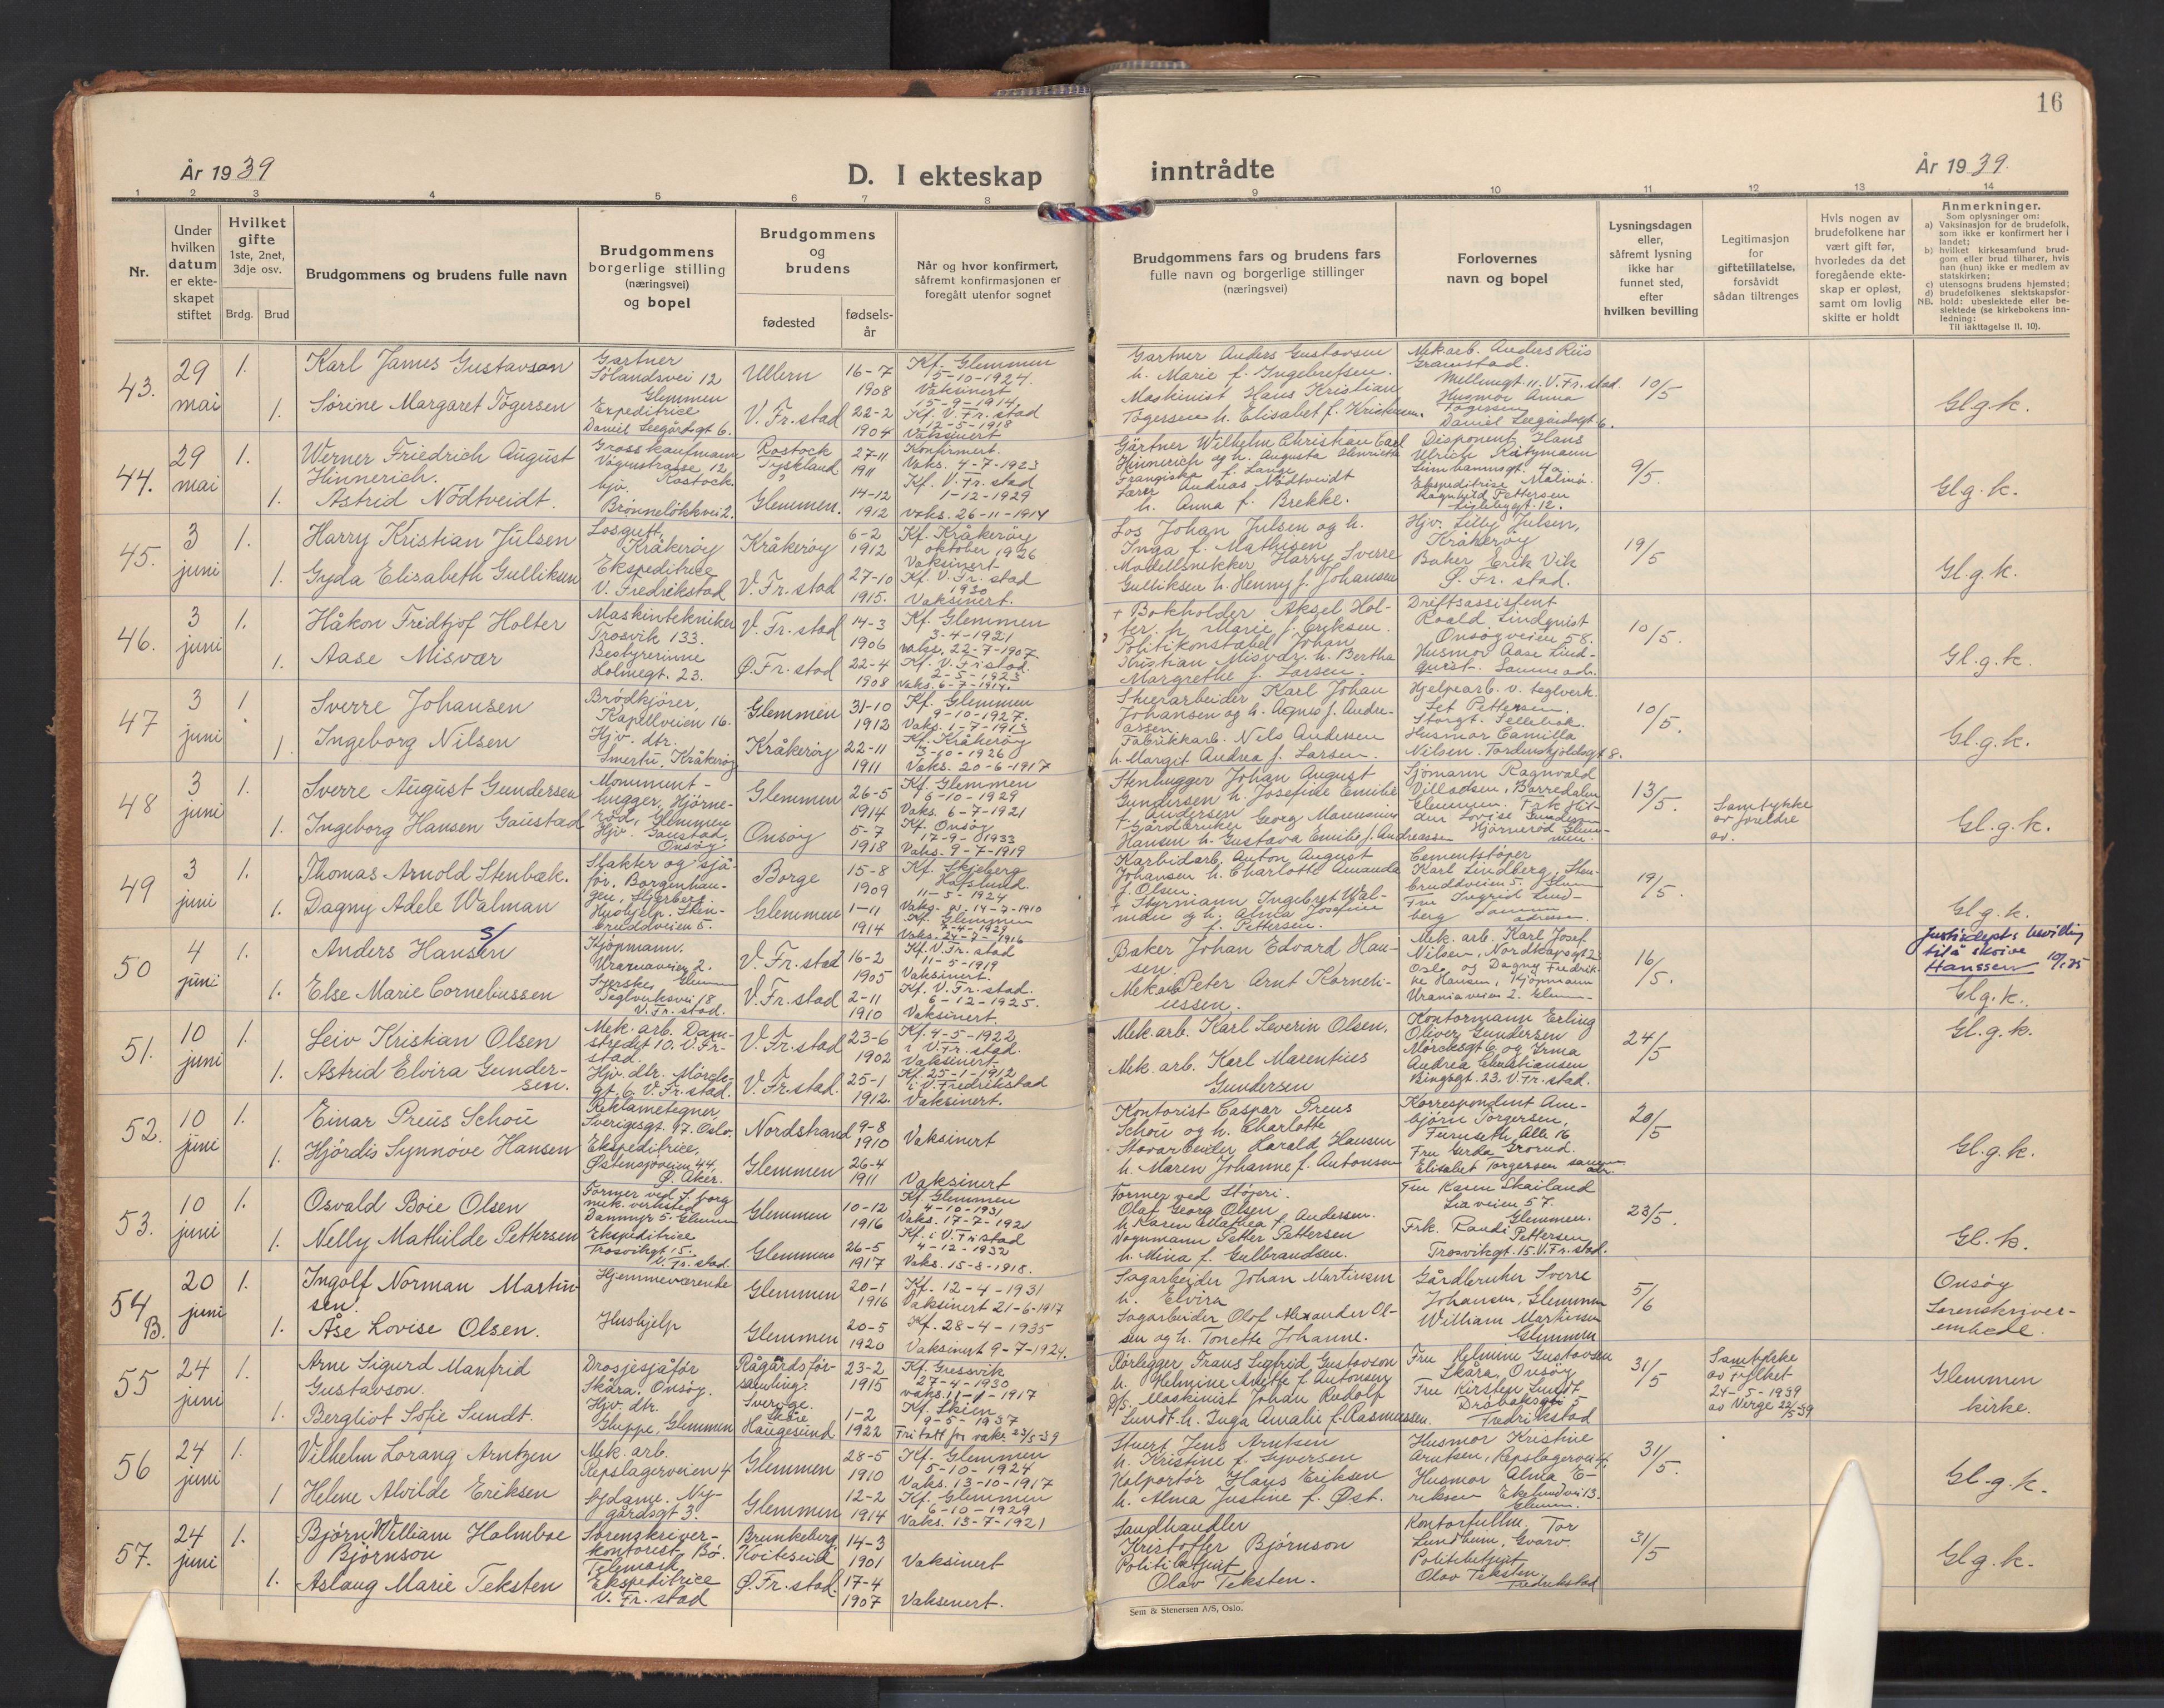 16
År 1939
D. I ekteskap
inntrådte
År 1939.
1 2 3 4 5 6 7 8 9 10 11 12 13 14
Nr.
Under hvilken datum er ekteskapet stiftet
Hvilket gifte 1ste, 2net, 3dje osv.
Brdg. Brud
Brudgommens og brudens fulle navn
Brudgommens borgerlige stilling (næringsvei) og bopel
Brudgommens og brudens
fødested
fødselsår
Når og hvor konfirmert, såfremt konfirmasjonen er foregått utenfor sognet
Brudgommens fars og brudens fars fulle navn og borgerlige stillinger (næringsvei)
Forlovernes navn og bopel
Lysningsdagen eller, såfremt lysning ikke har funnet sted, efter hvilken bevilling
Legitimasjon for giftetillatelse, forsåvidt sådan tiltrenges
Hvis nogen av brudefolkene har vært gift før, hvorledes da det foregående ekteskap er opløst, samt om lovlig skifte er holdt
Anmerkninger.
Som oplysninger om:
a) Vaksinasjon for de brudefolk, som ikke er konfirmert her i landet;
b) hvilket kirkesamfund brudgom eller brud tilhører, hvis han (hun) ikke er medlem av statskirken;
c) utensogns brudens hjemsted;
d) brudefolkenes slektskapsforhold: ubeslektede eller beslektede (se kirkebokens innledning:
NB.
Til iakttagelse II. 10).
43. 29 mai 1.
Karl James Gustavson
Gartner
Sølandsvei 12
Glemmen
Ullern
16-7 1908
Kf. Glemmen
15-10-1924.
Vaksinert
15-9-1914.
Gartner Anders Gustavsen
h. Marie f. Ingebretsen.
Mek.arb. Anders Riis
Granstad.
Mellumgt. 11. V. Fr.stad.
10/5
Gl.g.k.
1. Sørine Margaret Tøgersen
Expeditrice
Daniel Leegårdsgt 6.
V. Fr. stad
22-2 1904
Kf. V. Fr. stad
12-5-1918
Vaksinert
Maskinist Hans Kristian
Tøgersen h. Elisabet f. Kristensen.
Husmor Anna
Tøgersen
Daniel Leegårdsgt 6.
44. 29 mai 1.
Werner Friedrich August
Hinnerich.
Grosskaufmann
Vögenstrasse 12
Rostock.
Rostock
Tyskland
27-11 1911
Konfirmert.
Vaks. 4-7-1923
Gärtner Wilhelm Christian Carl
Hinnerich og h. Augusta Henriette
Franziska f. Lange
Disponent Hans
Ulrich Kätzmann
Limhamnsgt. 4a
Malmö.
9/5.
Gl.g.k.
1. Astrid Nødtveidt.
hjv.
Brønneløkkvei 2.
Glemmen.
14-12 1912
Kf. V. Fr. stad
1-12-1929
vaks. 26-11-1914
Lærer Andreas Nødtveidt
h. Anna f. Brekke.
Ekspeditrise
Ragnhild Pettersen
45. 3 juni 1.
Harry Kristian Julsen
Losgutt,
Kråkerøy
Kråkerøy
6-2 1912
Kf. Kråkerøy
oktober 1926
Vaksinert
Los Johan Julsen og h.
Inga f. Mathisen
Hjv. Lilly Julsen,
Kråkerøy
19/5
Gl.g.k.
1. Gyda Elisabeth Gulliksen
Ekspeditrice
V. Fredrikstad
V. Fr. stad
27-10 1915.
Kf. V. Fr. stad
1930
Vaksinert.
Modellsnekker Harry Sverre
Gulliksen h. Henny f. Johansen
Baker Erik Vik
Ø. Fr. stad.
46. 3 juni 1.
Håkon Fridtjof Holter
Maskintekniker
Trosvik 133.
V. Fr. stad
14-3 1906
Kf. Glemmen
3-4-1921
vaks. 22-7-1907
+ Bokholder Aksel Holter.
h. Marie f. Eriksen.
Driftsassistent
Roald Lindqvist
Onsøyveien 58.
10/5.
Gl.g.k.
1. Aase Misvær
Bestyrerinne
Holmegt. 23.
Ø. Fr. stad
22-4 1908
Kf. V. Fr. stad.
2-5-1923
Vaks. 6-7-1914.
Politikonstabel Johan
Kristian Misvær. h. Bertha
Margrethe f. Larsen.
Husmor Aase Lindqvist. Samme adr.
47 3 juni 1
Sverre Johansen
Brødkjører,
Kapellveien 16.
Glemmen
31-10 1912
Kf. Glemmen
9-10-1927.
Vaks. 1-7-1913
Stuerarbeider Karl Johan
Johansen og h. Agnes f. Andreassen.
Hjelpearb. v. teglverk.
Pettersen.
Storgt. Sellebak.
10/5.
Gl.g.k.
1. Ingeborg Nilsen
Hjv. dtr.
Smertu, Kråkerøy
Kråkerøy
22-11 1911
Kf. Kråkerøy
3-10-1926
Vaks. 20-6-1917
Fabrikkarb. Nils Andersen
h. Margit Andrea f. Larsen.
Husmor Camilla
Nilsen. Tordenskjoldsgt 8.
48 3 juni 1.
Sverre August Gundersen
Monumenthugger, Hjørnerød, Glemmen
Glemmen
26-5 1914
Kf. Glemmen
6-10-1929
Vaks. 6-7-1921
Stenhugger Johan August
Gundersen h. Josefine Emilie
f. Andersen
Sjømann Ragnvald
Villadsen, Borredalen
Glemmen.
13/5.
Samtykke
av foreldre
Gl.g.k.
1. Ingeborg Hansen Gaustad
Hjv. Gaustad,
Onsøy
Onsøy
5-7 1918
Kf. Onsøy
17-9-1933
Vaks. 9-7-1919
+ Gårdbruker Georg Marensius
Hansen h. Gustava Emilie f. Andreassen
Frk. Hildur Lovise Gundersen
Hjørnerød Glemmen.
49 3 juni 1.
Thomas Arnold Stenbæk.
Slakter og sjåfør, Borgenhaugen, Skjeberg
Borge
15-8 1909
Kf. Skjeberg
Hafslund.
11-5-1924
Vaks. 14-7-1910
Karbidarb. Anton August
Johansen h. Charlotte Amanda
f. Olsen.
Cementstøper
Karl Lindberg, Stenbruddveien 5. Glem
19/5.
Gl.g.k.
1. Dagny Adele Walman
Hushjelp. Stenbruddveien 5.
Glemmen
1-11 1914
Kf. Glemmen
7-4-1929
Vaks. 24-7-1916
+ Styrmann Ingebret Walman og h. Alma Josefine
f. Pettersen.
Fru Ingrid Lindberg Samme
adresse.
50 4 juni 1.
Anders Hansen
s/
Kjøpmann.
Uraniaveien 2.
Glemmen
V. Fr. stad
16-2 1905
Kf. V. Fr. stad
11-5-1919
Vaksinert.
Baker Johan Edvard Hansen.
Mek. arb. Karl Josef
Nilsen, Nordkapsgt 2
Oslo og Dagny Fredrikke Hansen, Kjøpmann
Uraniaveien 2. Glem
16/5.
Justisdepts bevilling
til å skrive
Hanssen 10/1 25
Gl.g.k.
1. Else Marie Cornebussen
Syerske,
Teglverksvei 18
V. Fr. stad.
V. Fr. stad
2-11 1910
Kf. V. Fr. stad.
6-12-1925.
Vaksinert.
Mek.arb. Peter Arnt Korneliussen.
51. 10 juni 1.
Leiv Kristian Olsen
Mek. arb. Damstredet 10. V. Fr-stad.
V. Fr. stad
23-6 1902
Kf. 4-5-1922
i V. Fr. stad.
Vaksinert
Mek. arb. Karl Severin Olsen.
Kontormann Erling
Oliver Gundersen
Mørcksgt 6 og Irma
Andrea Christiansen
Bingsgt. 23. V. Fr. stad.
24/5
Gl.g.k.
1. Astrid Elvira Gundersen.
Hjv. dtr. Mørcksgt. 6. V. Fr. stad.
V. Fr. stad.
25-1 1912.
Kf. 25-1-1912
i V. Fredrikstad
Vaksinert.
Mek. arb. Karl Marentius
Gundersen
52. 10 juni 1.
Einar Preus Schou
Reklametegner
Sverigesgt. 97. Oslo.
Nordstrand
9-8 1910
Vaksinert
Kontorist Caspar Preus
Schou og h. Charlotte
Korrespondent Arnbjørn Torgersen,
Furuseth Alle 16
Grorud.
20/5
Gl.g.k.
1. Hjørdis Synnøve Hansen
Ekspeditrice,
Østensjøveien 44,
Ø. Aker.
Glemmen
26-4 1911
Vaksinert
Stuvarbeider Harald Hansen
h. Maren Johanne f. Antonsen
Fru Gerda
Elisabet Torgersen samme adr.
53. 10 juni 1.
Osvald Boie Olsen
Former ved
mek. verksted
Dammyr 5. Glemmen
Glemmen
10-12 1916
Kf. Glemmen
4-10-1931
Vaks. 17-7-1921
Former ved Støperi.
Olaf Georg Olsen
h. Karen Mathea f. Andersen.
Fru Karen Skailand
Liaveien 57.
Glemmen.
23/5.
Gl.k.
1. Nelly Mathilde Pettersen
Ekspeditrice
Trosvikgt 15.
V. Fr. stad.
Glemmen
26-5 1917
Kf. i V. Fr. stad
4-12-1932
Vaks. 15-8-1918.
Vognmann Petter Pettersen
h. Mina f. Gulbrandsen.
Frk. Randi Pettersen
Trosvikgt. 15. V. Fr. stad.
54 B. 20 juni 1.
Ingolf Norman Martinsen.
Hjemmeværende
Glemmen
20-1 1916
Kf. 12-4-1931
Vaksinert 21-6-1917
Sagarbeider Johan Martinsen
h. Elvira
Gårdbruker Sverre
Johansen, Glemmen
5/6
Onsøy
Sorenskriverembede.
1. Åse Lovise Olsen.
Hushjelp
Glemmen
20-5 1920
Kf. 28-4-1935
Vaksinert 9-7-1924.
Sagarbeider Olof Alexander Olsen og h. Tonette Johanne.
William Martinsen
Glemmen
55 24 juni 1.
Arne Sigurd Manfrid
Gustavson.
Drosjesjåfør
Skåra, Onsøy.
Rågårdsforsamling.
Sverige.
23-2 1915
Kf. Gressvik
27-4-1930
vaks. 11-1-1917
Rørlegger Frans Segfrid Gustavson
h. Helmine Anette f. Antonsen
Fru Helmine Gustavsen
Skåra, Onsøy
31/5
Samtykke
av Fylket
24-5-1939
av Verge 22/5-39
Glemmen
kirke.
1. Bergliot Sofie Sundt.
Hjv. dtr.
Gluppe, Glemmen
Skåre
Haugesund
1-2 1922
Kf. Skien
9-5-1937
Fritatt for vaks. 23/5-39
D/S. Maskinist Johan Rudolf
Sundt. h. Inga Amalie f. Rasmussen.
Fru Kirsten Sundt
Drøbaksgt 5
Fredrikstad
56 24 juni 1.
Vilhelm Lorang Arntzen
Mek. arb.
Repslagerveien 4
Glemmen
28-5 1910
Kf. Glemmen
5-10-1924
Vaks. 13-10-1917
Stuert Jens Arntsen
h. Kristine f. Syversen
Husmor Kristine
Arntsen, Repslagervei 4,
31/5.
Gl.g.k.
1 Helene Alvilde Eriksen
Sydame. Nygårdsgt 3.
Glemmen
12-2 1914
Kf. Glemmen
6-10-1929
Vaks. 13-7-1921
Kolportør Hans Eriksen
h. Alma Justine f. Øst.
Husmor Alma Eriksen Ekelundvei 13.
Glemm.
57. 24 juni 1.
Bjørn William Holmboe
Bjørnson
Sorenskriverkontorist, Bø.
Telemark
Brunkeberg
Kviteseid
14-3 1901
Vaksinert
Landhandler
Kristoffer Bjørnson
Kontorfullm. Tor
Lundheim, Gvarv.
31/5
Gl.g.k.
1. Aslaug Marie Teksten
Ekspeditrice
V. Fr. stad
Ø. Fr. stad.
17-4 1907
Vaksinert.
Politibetjent
Olav Teksten.
Politibetjent
Olav Teksten,
Fredrikstad
Sem & Stenersen A/S, Oslo.